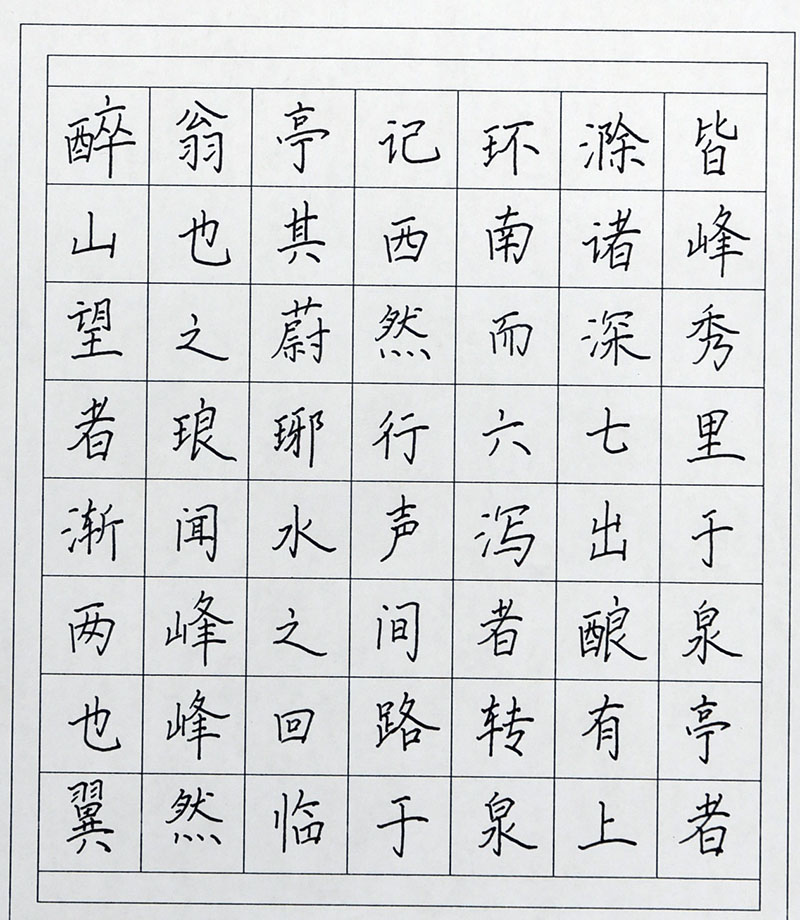 醉翁亭记环滁皆
山也其西南诸峰
望之蔚然而深秀
者琅琊行六七里
渐闻水声泻出于
两峰之间者酿泉
也峰回路转有亭
翼然临于泉上者